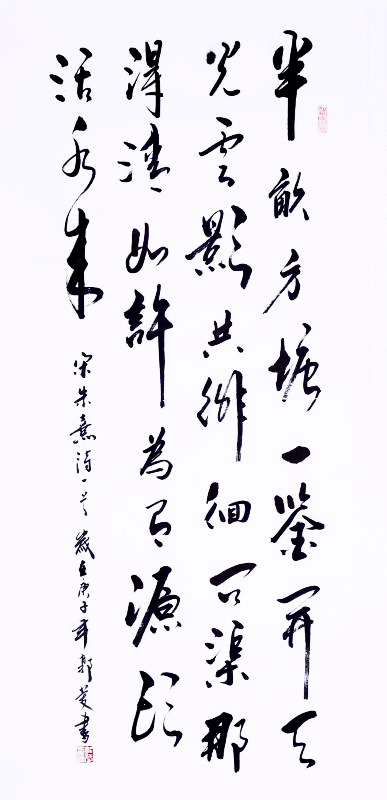 半畝方塘一鑒開天
光雲影共徘徊問渠那
得清如許為有源頭
活水來
宋朱熹詩一首 歲在庚子年郭書